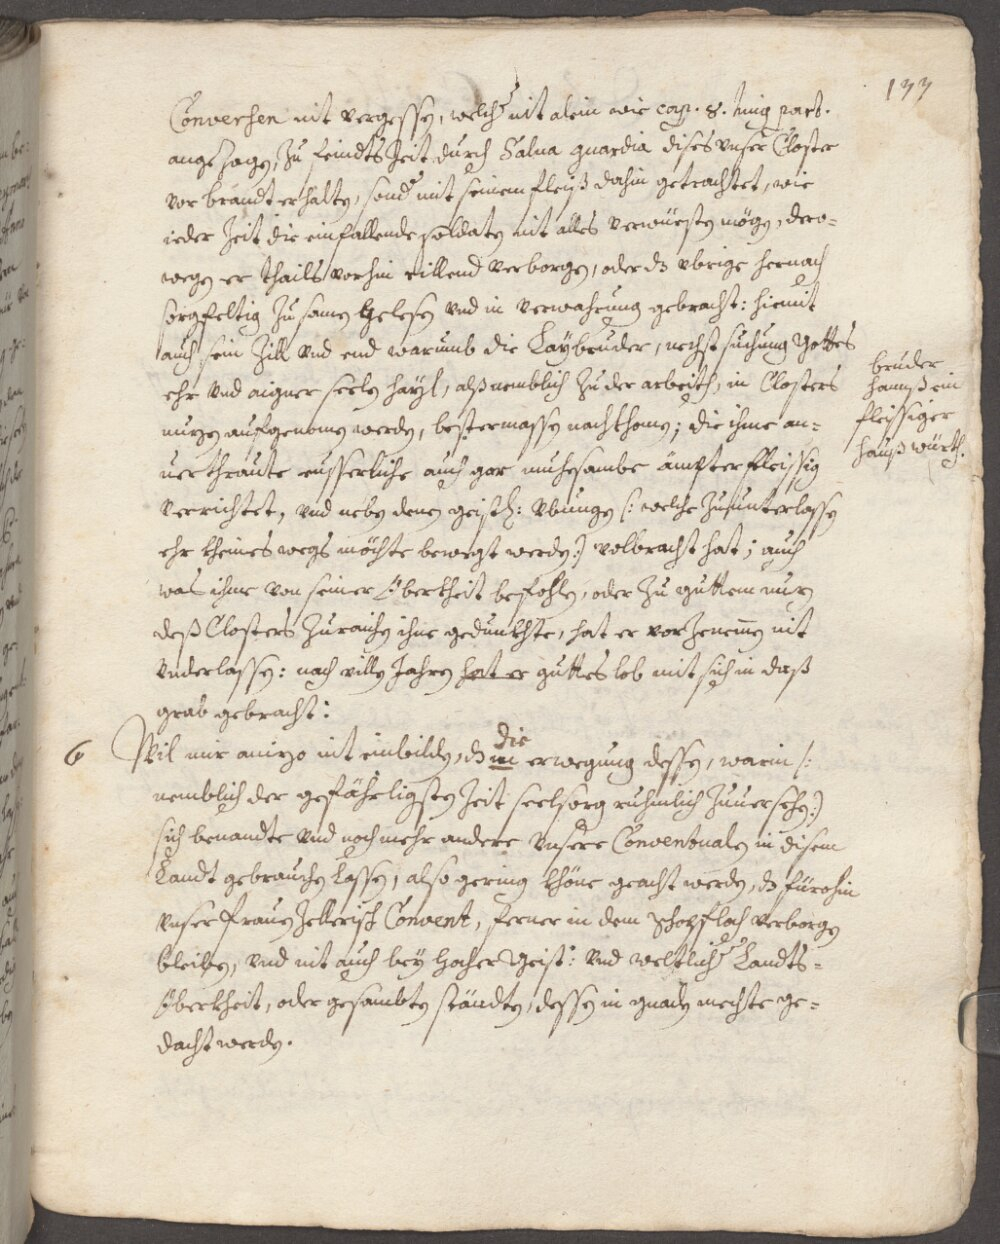 177
Conversen nit vergessen, welcher nit alein wie cap. 8. huig part.
angezogen, zu feindts Zeit durch Salua guardia dises vnser Closter
vor brandt erhalten, sonder mit seinem fleiß dahin getrachtet, wie
ieder Zeit die einfallende soldaten nit alles verwüesten mögen, dero-
wegen er thails vorhin eillend verborgen, oder dz vbrige hernach
sorgfeltig Zu samen gelesen vnd in verwahrung gebracht: hiemit
auch sein Zill vnd end warumb die Laybrüder, nechst suchung Gottes
ehr vnd aigner seelen hayl, alß nemblich Zu der arbeith, in Closters
nuzen aufgenomen werden, bestermassen nachkhomen; die ihme an-
uerthraute eusserliche auch gar muhesambe ämpter fleissig
verrichtet, vnd neben denen geistl: Vbungen /: welche Zu vnterlassen
ehr kheines wegs möchte bewegt werden :/ volbracht hat; auch
was ihme von seiner Oberkheit befohlen, oder Zu guttem nuz
deß Closters Zuraichen ihne gedunkhte, hat er vorZenemen nit
vnderlassen: nach villen Jahren hat er guttes lob mit sich in daß
grab gebracht:
bruder
hannß ein
fleissiger
hauß würth.
6 Wil mir aniezo nit einbilden, dz in die erwegung dessen, warin /:
nemblich der gefährligsten Zeit seelsorg ruhmlich Zuuersehen :/
sich benandte vnd noch mehr andere vnsere Conventualen in disem
Landt gebrauchen lassen, also gering khöne geacht werden, dz fürohin
vnser frauenZellerisch Convent, ferner in dem verborgen
bleiben, vnd nit auch bey hocher Geist: vnd weltlicher Landts-
Oberkheit, oder gesambten ständten, dessen in gnaden mechte ge-
dacht werden.